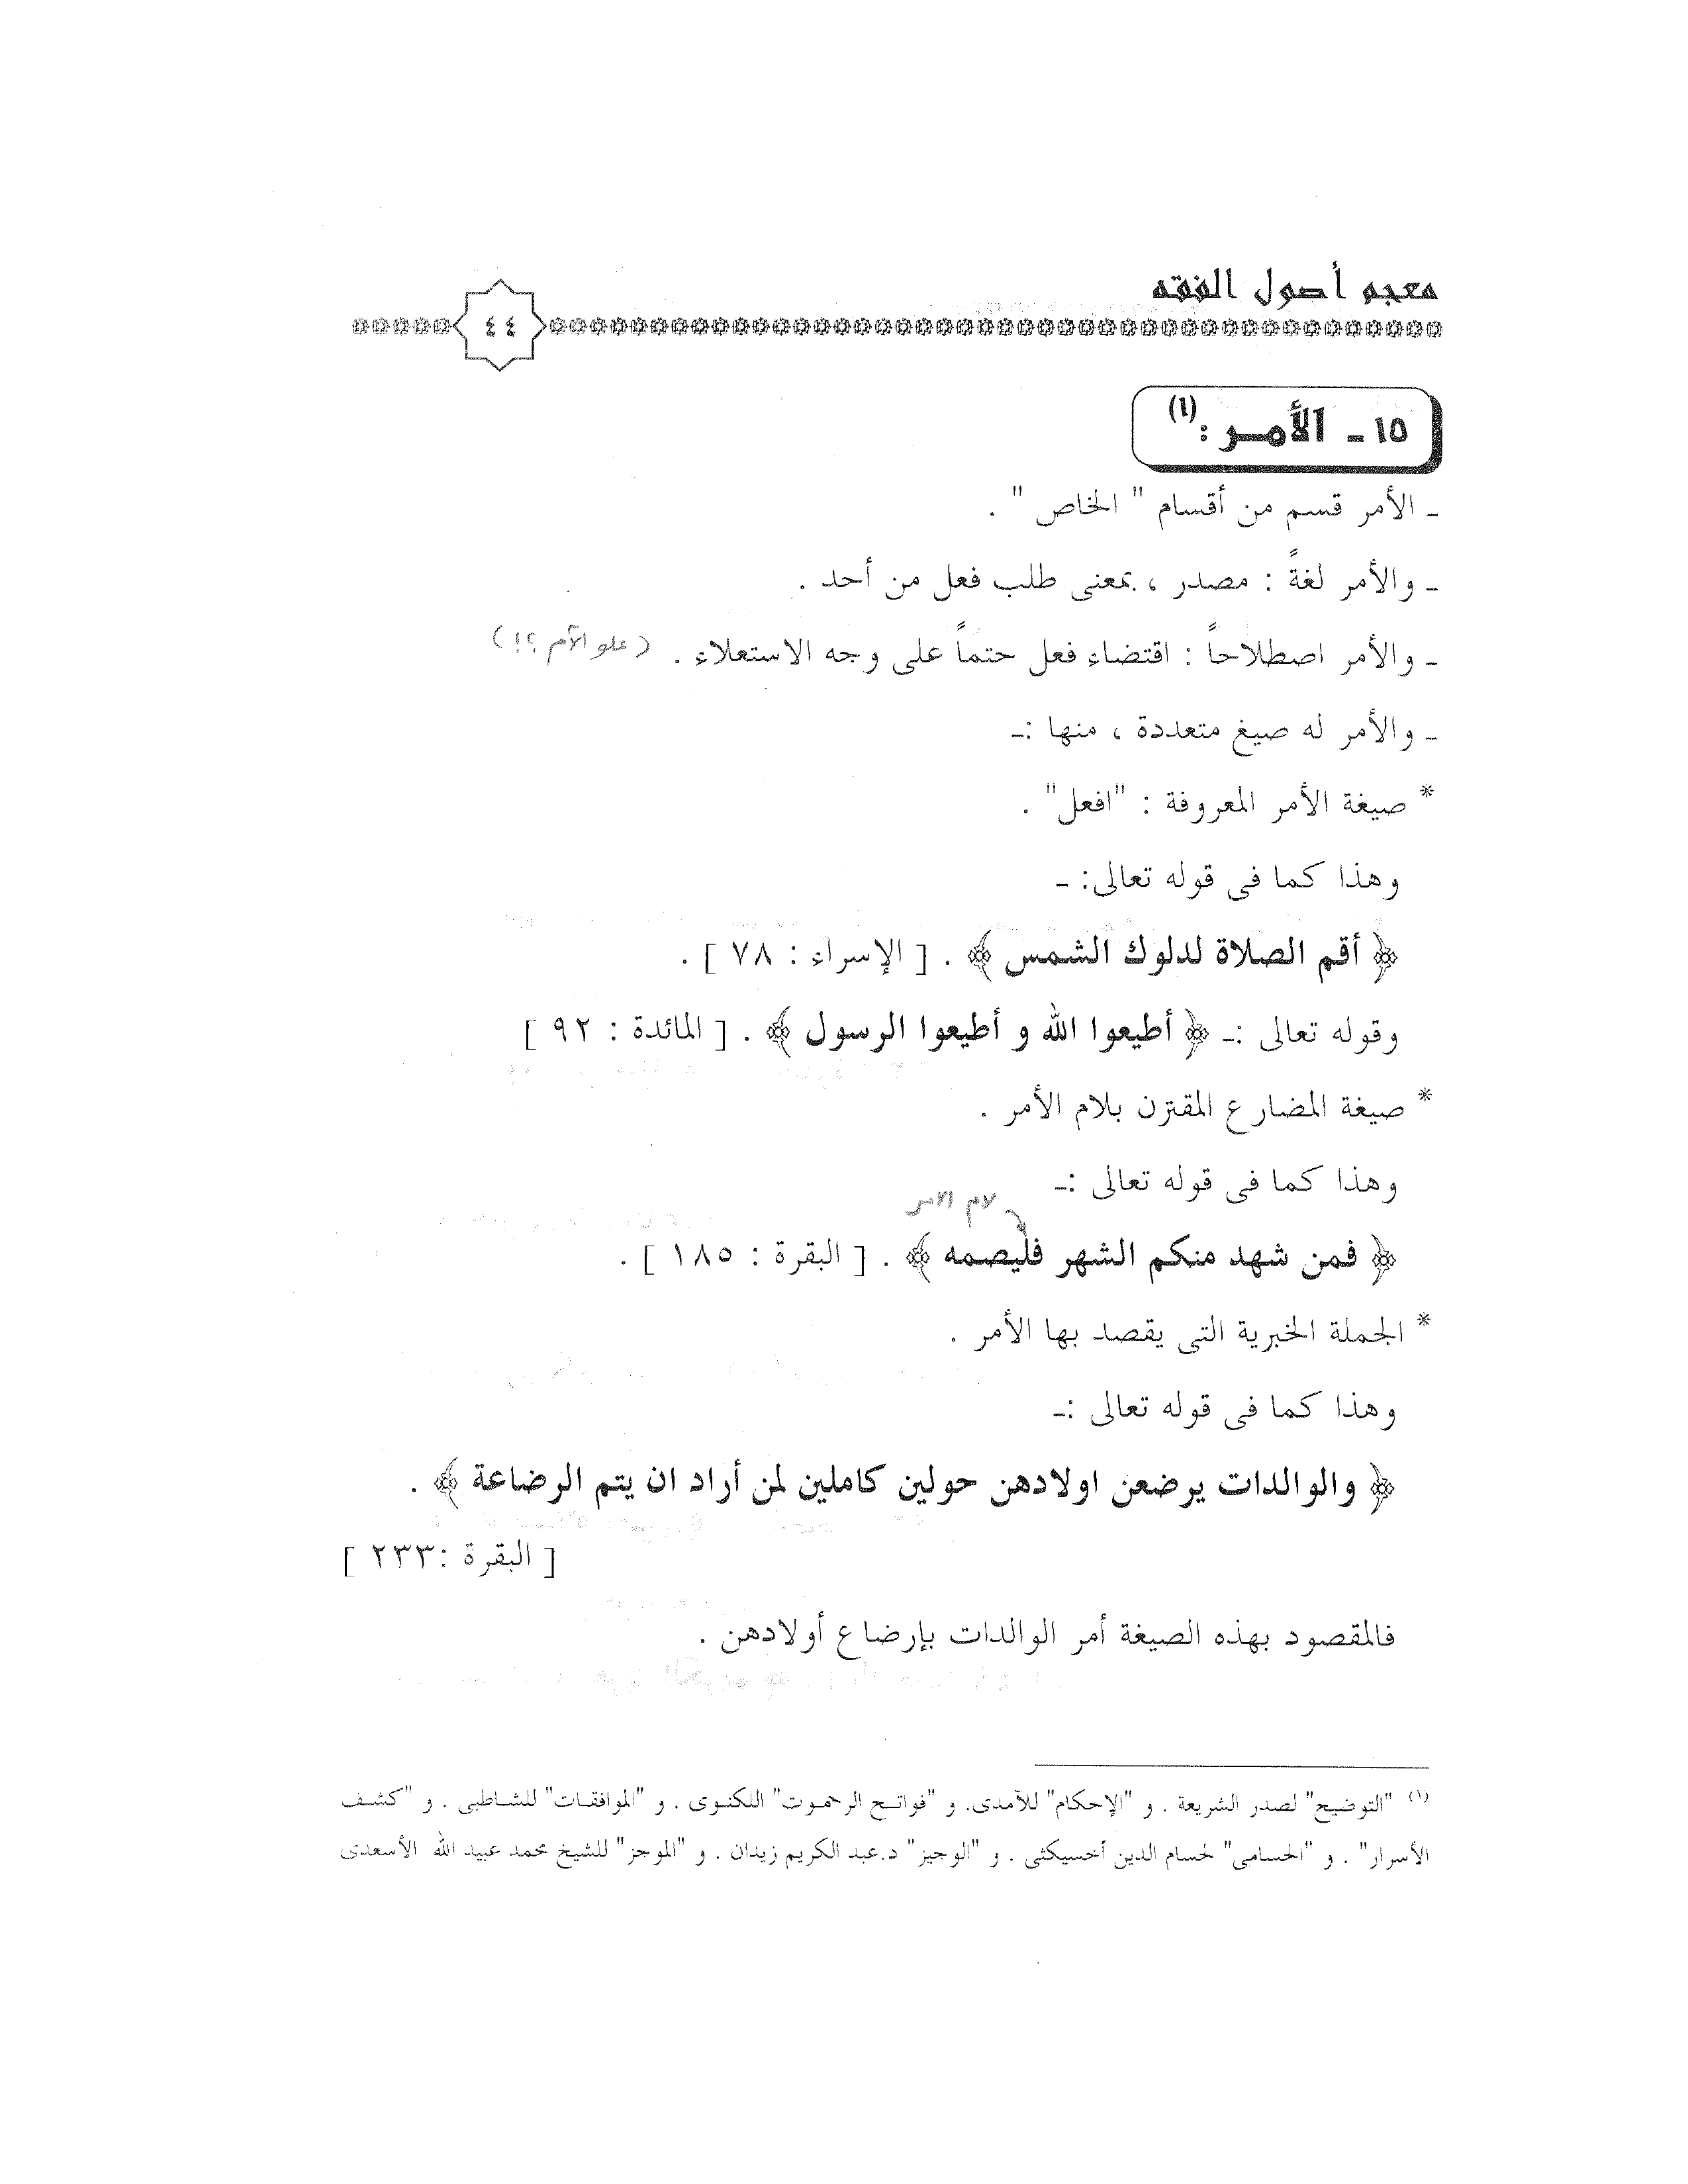 معجم أصول الفقه
٤٤
١٥ ـ الأمـر :(١)
ـ الأمر قسم من أقسام " الخاص " .
ـ والأمر لغةً : مصدر ، بمعنى طلب فعل من أحد .
ـ والأمر اصطلاحاً : اقتضاء فعل حتماً على وجه الاستعلاء . (علو الآمر ؟!)
ـ والأمر له صيغ متعددة ، منها :ـ
* صيغة الأمر المعروفة : "افعل" .
وهذا كما فى قوله تعالى: ـ
﴿ أقم الصلاة لدلوك الشمس ﴾ . [ الإسراء : ٧٨ ] .
وقوله تعالى :ـ ﴿ أطيعوا الله و أطيعوا الرسول ﴾ . [ المائدة : ٩٢ ]
* صيغة المضارع المقترن بلام الأمر .
وهذا كما فى قوله تعالى :ـ
لام الامر
﴿ فمن شهد منكم الشهر فليصمه ﴾ . [ البقرة : ١٨٥ ] .
* الجملة الخبرية التى يقصد بها الأمر .
وهذا كما فى قوله تعالى :ـ
﴿ والوالدات يرضعن اولادهن حولين كاملين لمن أراد ان يتم الرضاعة ﴾ .
[ البقرة :٢٣٣ ]
فالمقصود بهذه الصيغة أمر الوالدات بإرضاع أولادهن .
(١) "التوضيح" لصدر الشريعة . و "الإحكام" للآمدى. و "فواتـح الرحمـوت" اللكنـوى . و "الموافقـات" للشـاطبى . و "كشـف
الأسرار" . و "الحسامى" لحسام الدين أخسيكثى . و "الوجيز" د.عبد الكريم زيدان . و "الموجز" للشيخ محمد عبيد الله الأسعدى